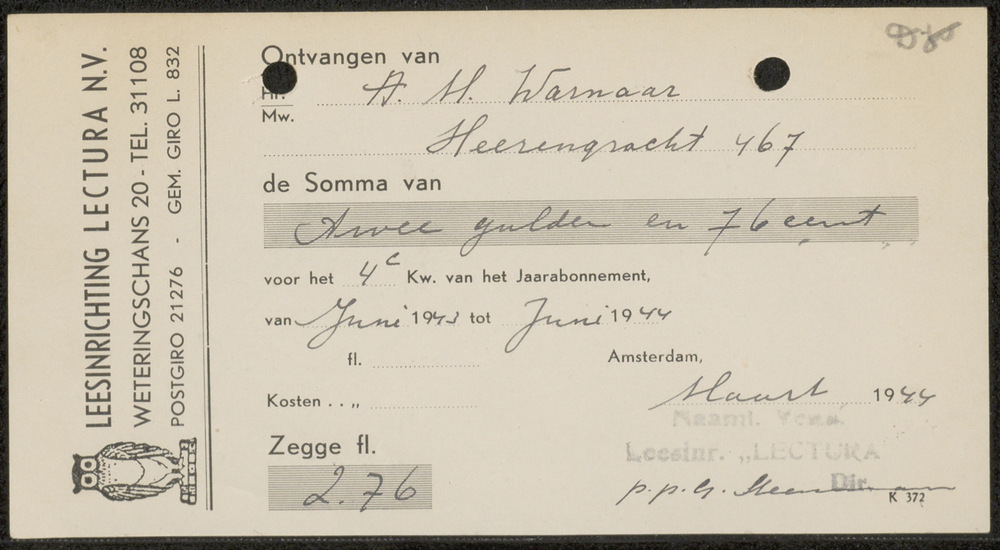 LEESINRICHTING LECTURA N.V.
WETERINGSCHANS 20 - TEL. 31108
POSTGIRO 21276 - GEM. GIRO L. 832
Ontvangen van
Hr.
Mw.
A. M. Warnaar
Heerengracht 467
de Somma van
Twee gulden en 76 cent
voor het 4e Kw. van het Jaarabonnement,
van Juni 1943 tot Juni 1944
fl.
Amsterdam,
Kosten . . „
Maart 1944
Zegge fl.
2.76
Naaml. Venn.
Leesinr. „LECTURA
Dir.
p.p. G.
K 372